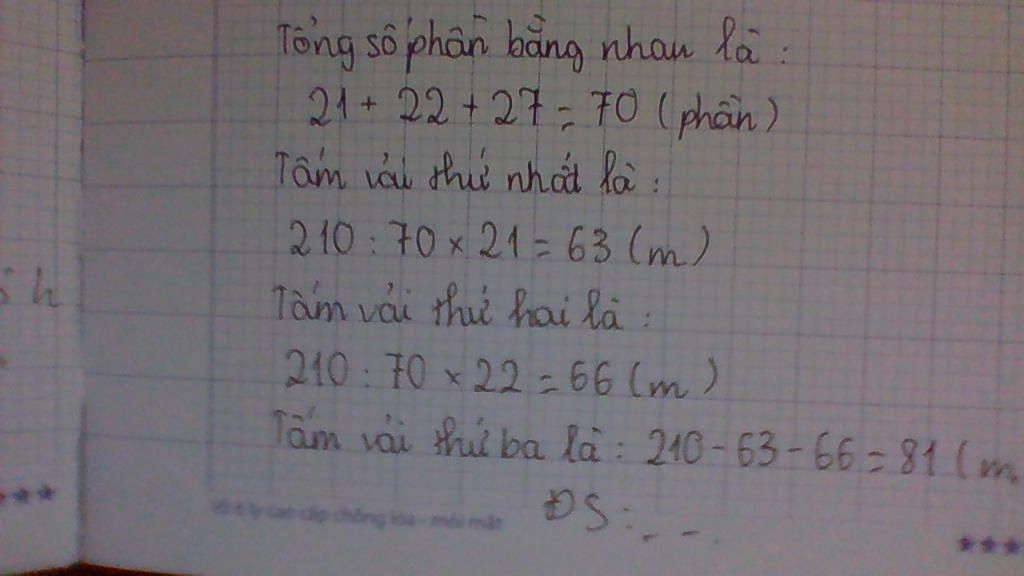 Tổng số phần bằng nhau là :
21 + 22 + 27 = 70 (phần)
Tấm vải thứ nhất là :
210 : 70 × 21 = 63 (m)
Tấm vải thứ hai là :
210 : 70 × 22 = 66 (m)
Tấm vải thứ ba là : 210 - 63 - 66 = 81 (m
ĐS : - - .